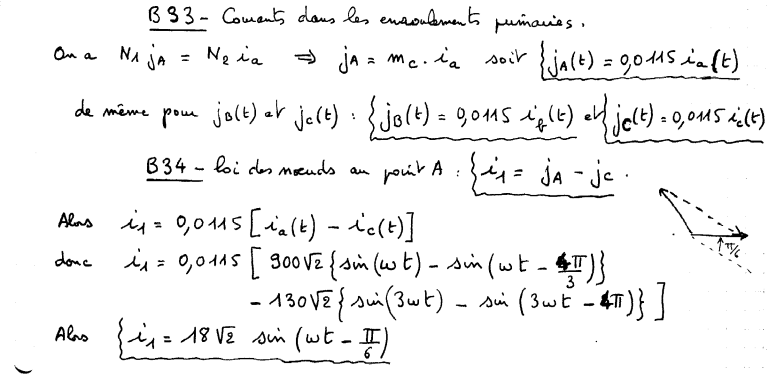 B33 - Courants dans les enroulements primaires.
On a N1 jA = N2 ia ⇒ jA = mc . ia soit { jA(t) = 0,0115 ia(t)
de même pour jB(t) et jC(t) : { jB(t) = 0,0115 ib(t) et { jC(t) = 0,0115 ic(t)
B34 - Loi des nœuds au point A : { i1 = jA - jC .
Alors i1 = 0,0115 [ ia(t) - ic(t) ]
donc i1 = 0,0115 [ 900√2 { sin(ωt) - sin(ωt - 4π/3) }
- 130√2 { sin(3ωt) - sin(3ωt - 4π) } ]
Alors { i1 = 18√2 sin(ωt - π/6)
π/6